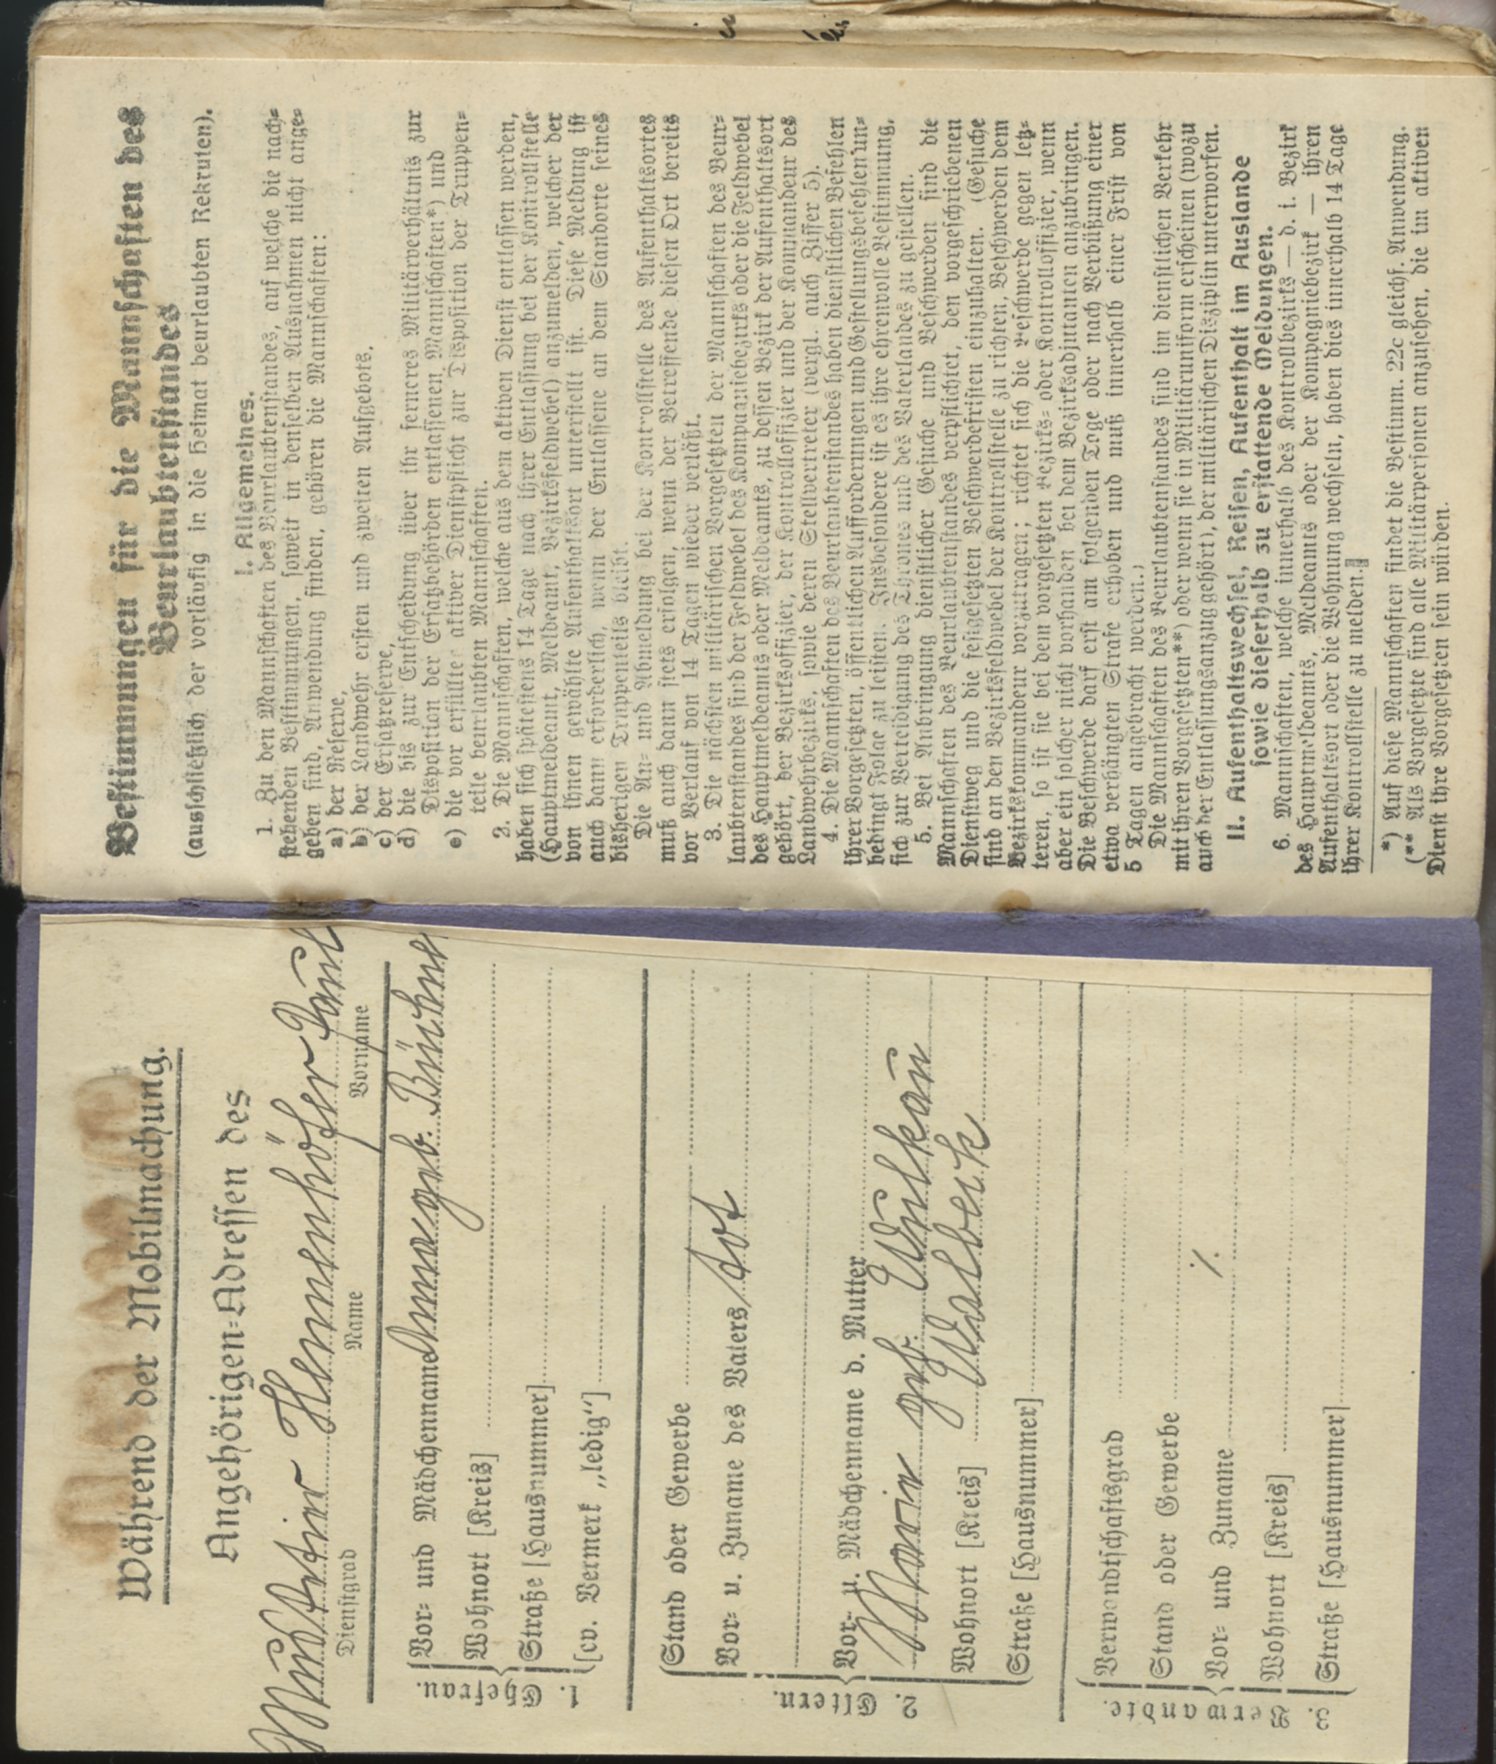 Während der Mobilmachung.
Angehörigen-Adressen des
Musketier Hemmenhöfer Paul
Dienstgrad Name Vorname
1. Ehefrau.
Vor- und Mädchenname Anna geb. Büchne
Wohnort [Kreis]
Straße [Hausnummer]
[ev. Vermerk „ledig“]
2. Eltern.
Stand oder Gewerbe
Vor- u. Zuname des Vaters tot
Vor- u. Mädchenname d. Mutter
Maria geb. Wulkan
Wohnort [Kreis] Walbeck
Straße [Hausnummer]
3. Verwandte.
Verwandtschaftsgrad
Stand oder Gewerbe
Vor- und Zuname ⁒
Wohnort [Kreis]
Straße [Hausnummer]
Bestimmungen für die Mannschaften des
Beurlaubtenstandes
(ausschließlich der vorläufig in die Heimat beurlaubten Rekruten).
I. Allgemeines.
1. Zu den Mannschaften des Beurlaubtenstandes, auf welche die nach-
stehenden Bestimmungen, soweit in denselben Ausnahmen nicht ange-
geben sind, Anwendung finden, gehören die Mannschaften:
a) der Reserve,
b) der Landwehr ersten und zweiten Aufgebots,
c) der Ersatzreserve,
d) die bis zur Entscheidung über ihr ferneres Militärverhältnis zur
Disposition der Ersatzbehörden entlassenen Mannschaften*) und
e) die vor erfüllter aktiver Dienstpflicht zur Disposition der Truppen-
teile beurlaubten Mannschaften.
2. Die Mannschaften, welche aus dem aktiven Dienst entlassen werden,
haben sich spätestens 14 Tage nach ihrer Entlassung bei der Kontrollstelle
(Hauptmeldeamt, Meldeamt, Bezirksfeldwebel) anzumelden, welcher der
von ihnen gewählte Aufenthaltsort unterstellt ist. Diese Meldung ist
auch dann erforderlich, wenn der Entlassene an dem Standorte seines
bisherigen Truppenteils bleibt.
Die An- und Abmeldung bei der Kontrollstelle des Aufenthaltsortes
muß auch dann stets erfolgen, wenn der Betreffende diesen Ort bereits
vor Verlauf von 14 Tagen wieder verläßt.
3. Die nächsten militärischen Vorgesetzten der Mannschaften des Beur-
laubtenstandes sind der Feldwebel des Kompagniebezirks oder die Feldwebel
des Hauptmeldeamts oder Meldeamts, zu dessen Bezirk der Aufenthaltsort
gehört, der Bezirksoffizier, der Kontrolloffizier und der Kommandeur des
Landwehrbezirks, sowie deren Stellvertreter (vergl. auch Ziffer 5).
4. Die Mannschaften des Beurlaubtenstandes haben dienstlichen Befehlen
ihrer Vorgesetzten, öffentlichen Aufforderungen und Gestellungsbefehlen un-
bedingt Folge zu leisten. Insbesondere ist es ihre ehrenvolle Bestimmung,
sich zur Verteidigung des Thrones und des Vaterlandes zu gestellen.
5. Bei Anbringung dienstlicher Gesuche und Beschwerden sind die
Mannschaften des Beurlaubtenstandes verpflichtet, den vorgeschriebenen
Dienstweg und die festgesetzten Beschwerdefristen einzuhalten. (Gesuche
sind an den Bezirksfeldwebel der Kontrollstelle zu richten, Beschwerden dem
Bezirkskommandeur vorzutragen; richtet sich die Beschwerde gegen letz-
teren, so ist sie bei dem vorgesetzten Bezirks- oder Kontrolloffizier, wenn
aber ein solcher nicht vorhanden bei dem Bezirksadjutanten anzubringen.
Die Beschwerde darf erst am folgenden Tage oder nach Verbüßung einer
etwa verhängten Strafe erhoben und muß innerhalb einer Frist von
5 Tagen angebracht werden.)
Die Mannschaften des Beurlaubtenstandes sind im dienstlichen Verkehr
mit ihren Vorgesetzten**) oder wenn sie in Militäruniform erscheinen (wozu
auch der Entlassungsanzug gehört), der militärischen Disziplin unterworfen.
II. Aufenthaltswechsel, Reisen, Aufenthalt im Auslande
sowie dieserhalb zu erstattende Meldungen.
6. Mannschaften, welche innerhalb des Kontrollbezirks — d. i. Bezirk
des Hauptmeldeamts, Meldeamts oder der Kompagniebezirk — ihren
Aufenthaltsort oder die Wohnung wechseln, haben dies innerhalb 14 Tage
ihrer Kontrollstelle zu melden.
*) Auf diese Mannschaften findet die Bestimm. 22c gleichf. Anwendung.
(** Als Vorgesetzte sind alle Militärpersonen anzusehen, die im aktiven
Dienst ihre Vorgesetzten sein würden.